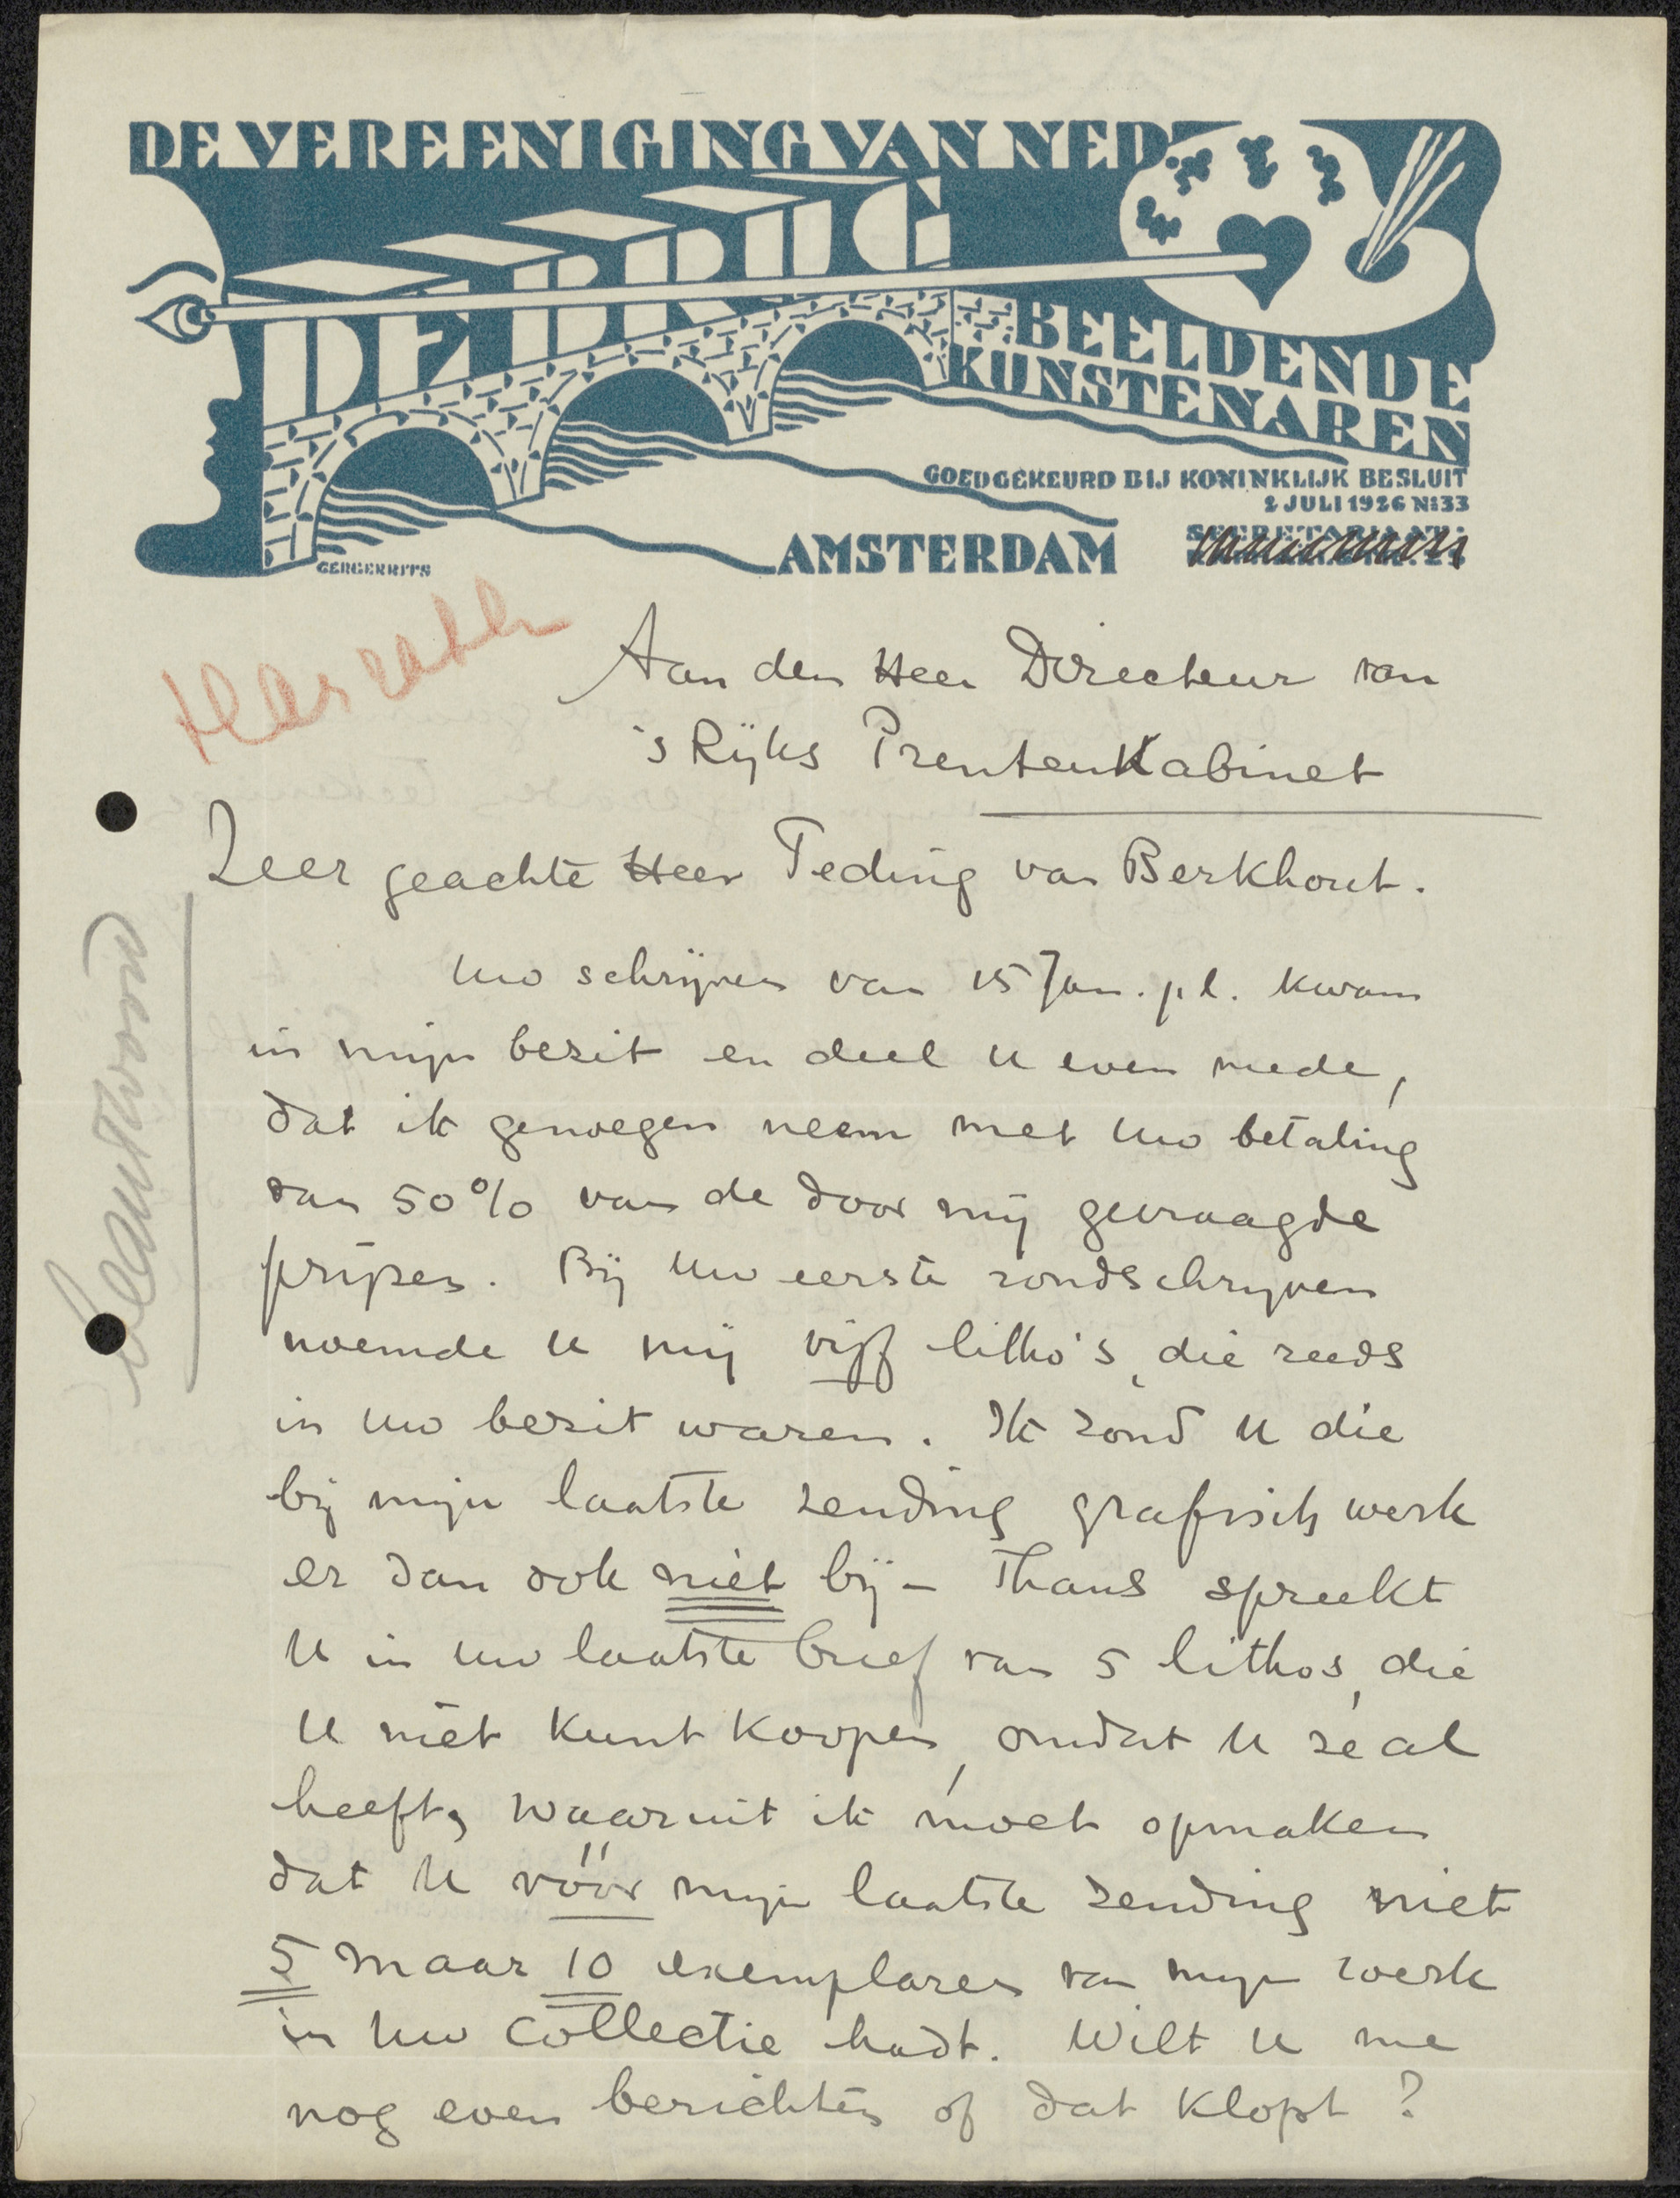 DE VEREENIGING VAN NED.
DE BRUG
BEELDENDE
KUNSTENAREN
GOEDGEKEURD BIJ KONINKLIJK BESLUIT
2 JULI 1926 No 33
SECRETARIAAT:
AMSTERDAM
GERGERRITS
Aan den Heer Directeur van
's Rijks PrentenKabinet
Zeer geachte Heer Teding van Berkhout.
beantwoord
Uw schrijven van 15 Jan. p.l. kwam
in mijn bezit en deel U even mede,
dat ik genoegen neem met Uw betaling
van 50% van de door mij gevraagde
prijzen. Bij Uw eerste rondschrijven
noemde U mij vijf litho's, die reeds
in Uw bezit waren. Ik zond U die
bij mijn laatste zending grafisch werk
er dan ook niet bij – Thans spreekt
U in Uw laatste brief van 5 litho's, die
U niet kunt koopen, omdat U ze al
heeft, waaruit ik moet opmaken
dat U vóór mijn laatste zending niet
5 maar 10 exemplaren van mijn werk
in Uw collectie hadt. Wilt U me
nog even berichten of dat klopt?